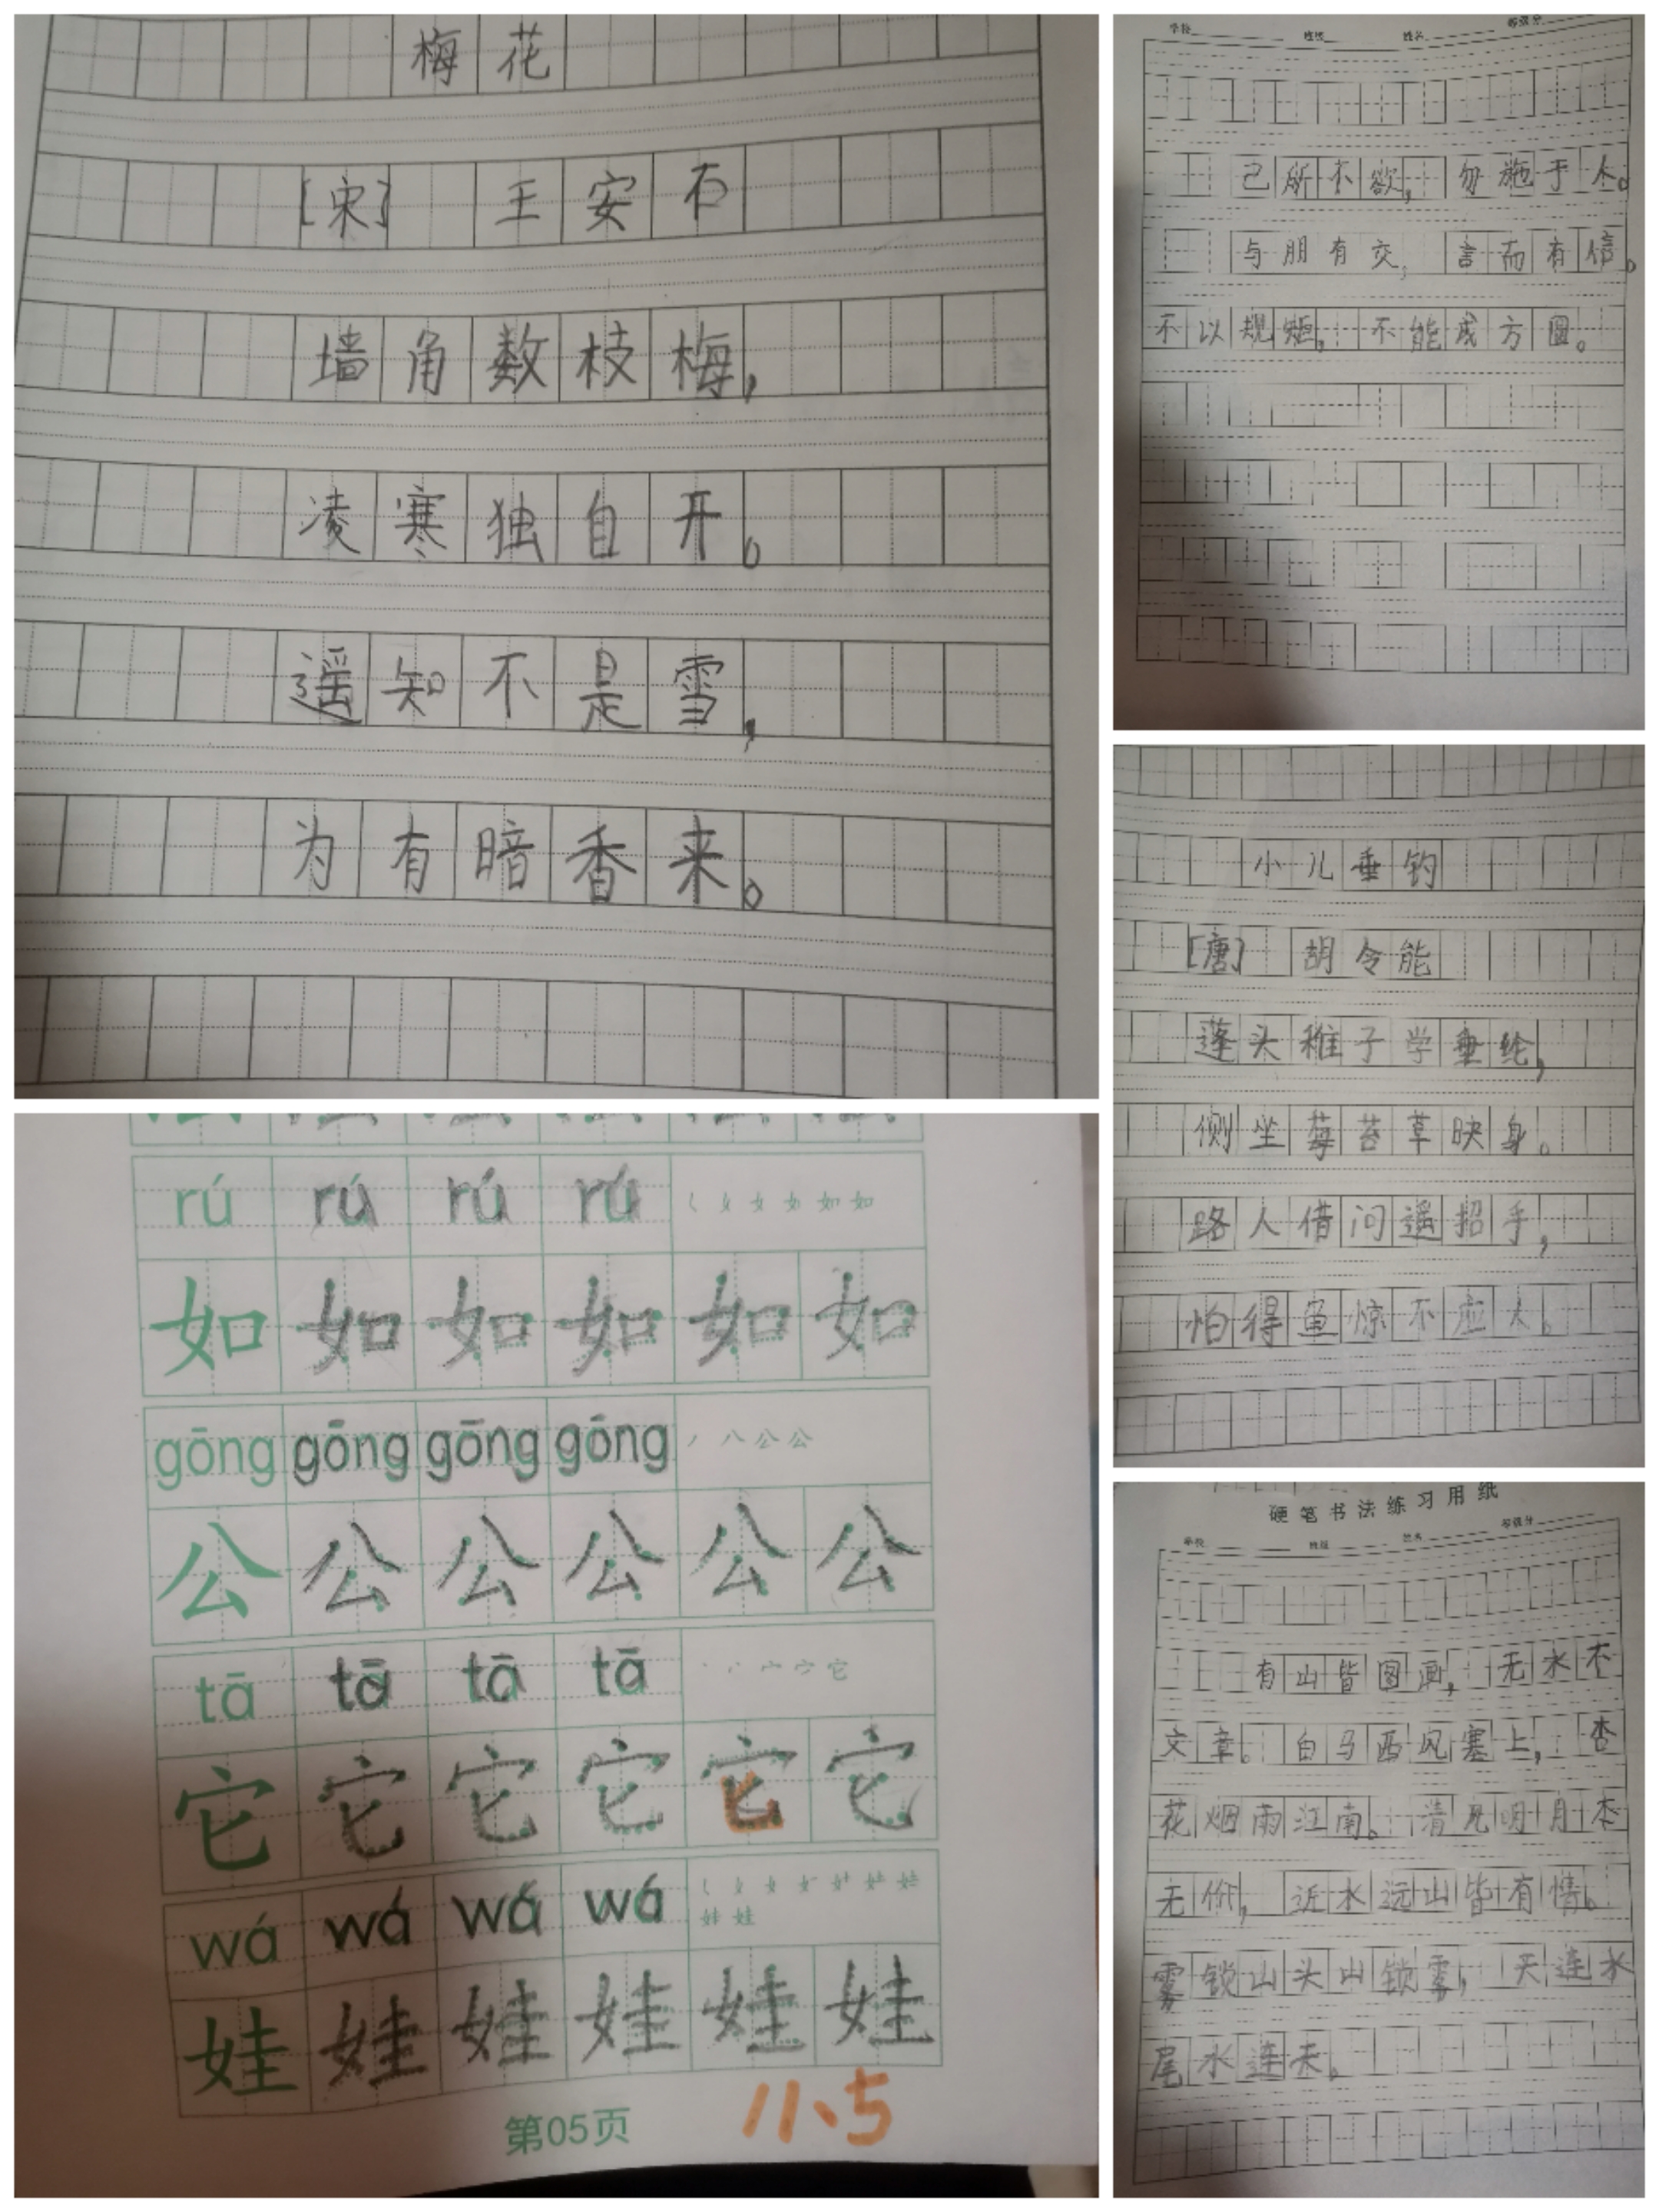 梅花
[宋] 王安石
墙角数枝梅,
凌寒独自开。
遥知不是雪,
为有暗香来。
学校 班级 姓名 等级分
己所不欲, 勿施于人。
与朋有交, 言而有信。
不以规矩, 不能成方圆。
小儿垂钓
[唐] 胡令能
蓬头稚子学垂纶,
侧坐莓苔草映身。
路人借问遥招手,
怕得鱼惊不应人。
rú rú rú rú
如 如 如 如 如 如
gōng gōng gōng gōng
公 公 公 公 公 公
tā tā tā tā
它 它 它 它 它 它
wá wá wá wá
娃 娃 娃 娃 娃 娃
第05页
11、5
硬笔书法练习用纸
学校 班级 姓名 等级分
有山皆图画, 无水不
文章。白马西风塞上, 杏
花烟雨江南。清风明月本
无价, 近水远山皆有情。
雾锁山头山锁雾, 天连水
尾水连天。